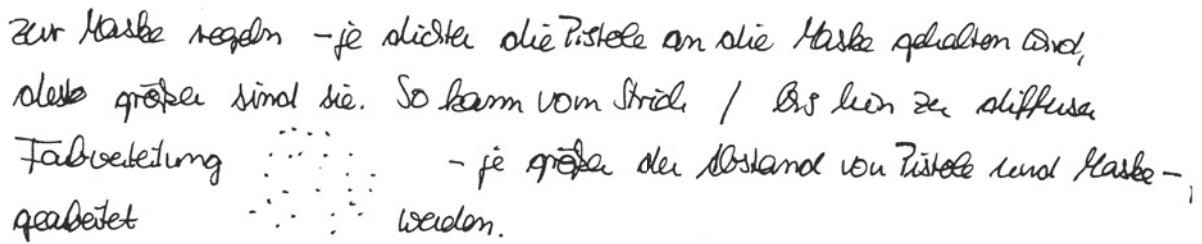 zur Maske regeln – je dichter die Pistole an die Maske gehalten wird,
desto größer sind sie. So kann vom Strich / bis hin zu diffuser
Farbverteilung – je größer der Abstand von Pistole und Maske –,
gearbeitet werden.